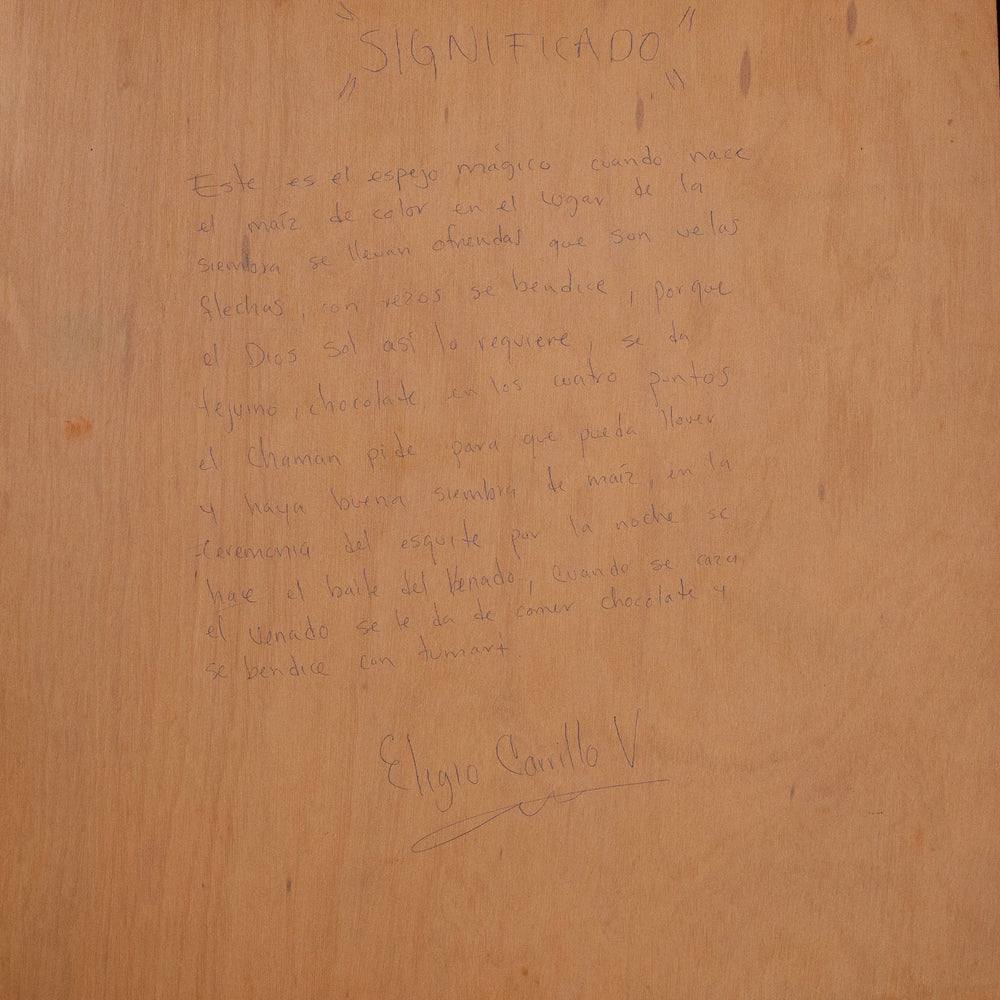 "SIGNIFICADO"
Este es el espejo mágico cuando nace
el maíz de color en el lugar de la
siembra se llevan ofrendas que son velas
flechas, con rezos se bendice, porque
el Dios Sol así lo requiere, se da
tejuino, chocolate, en los cuatro puntos
el Chaman pide para que pueda llover
y haya buena siembra de maíz, en la
Ceremonia del esquite por la noche se
hace el baile del Venado, cuando se caza
el venado se le da de comer chocolate y
se bendice con tumari.
Eligio Carrillo V